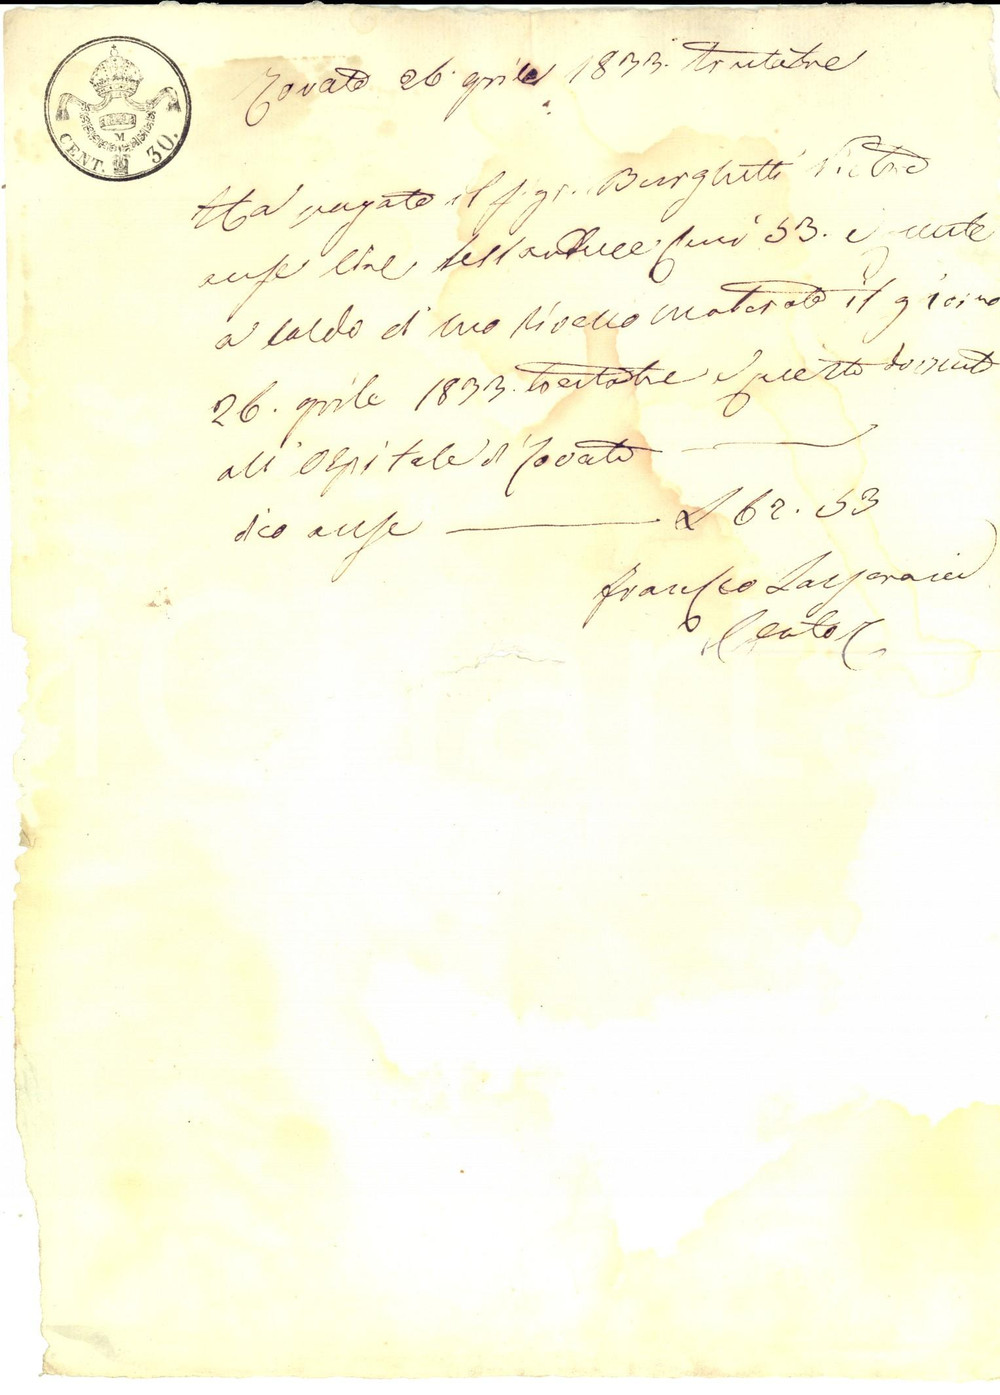 CENT. 30.
M
Rovato 26. aprile 1833. trentatre
Ha pagato il Sigr. Burghetti Pietro
aus.e lire sessantadue Cmi 53. e queste
a saldo di uno livello maturato il giorno
26. aprile 1833. trentatre e questo dovut
all'Ospitale di Rovato
dico aus.e L 62. 53
Franc.sco